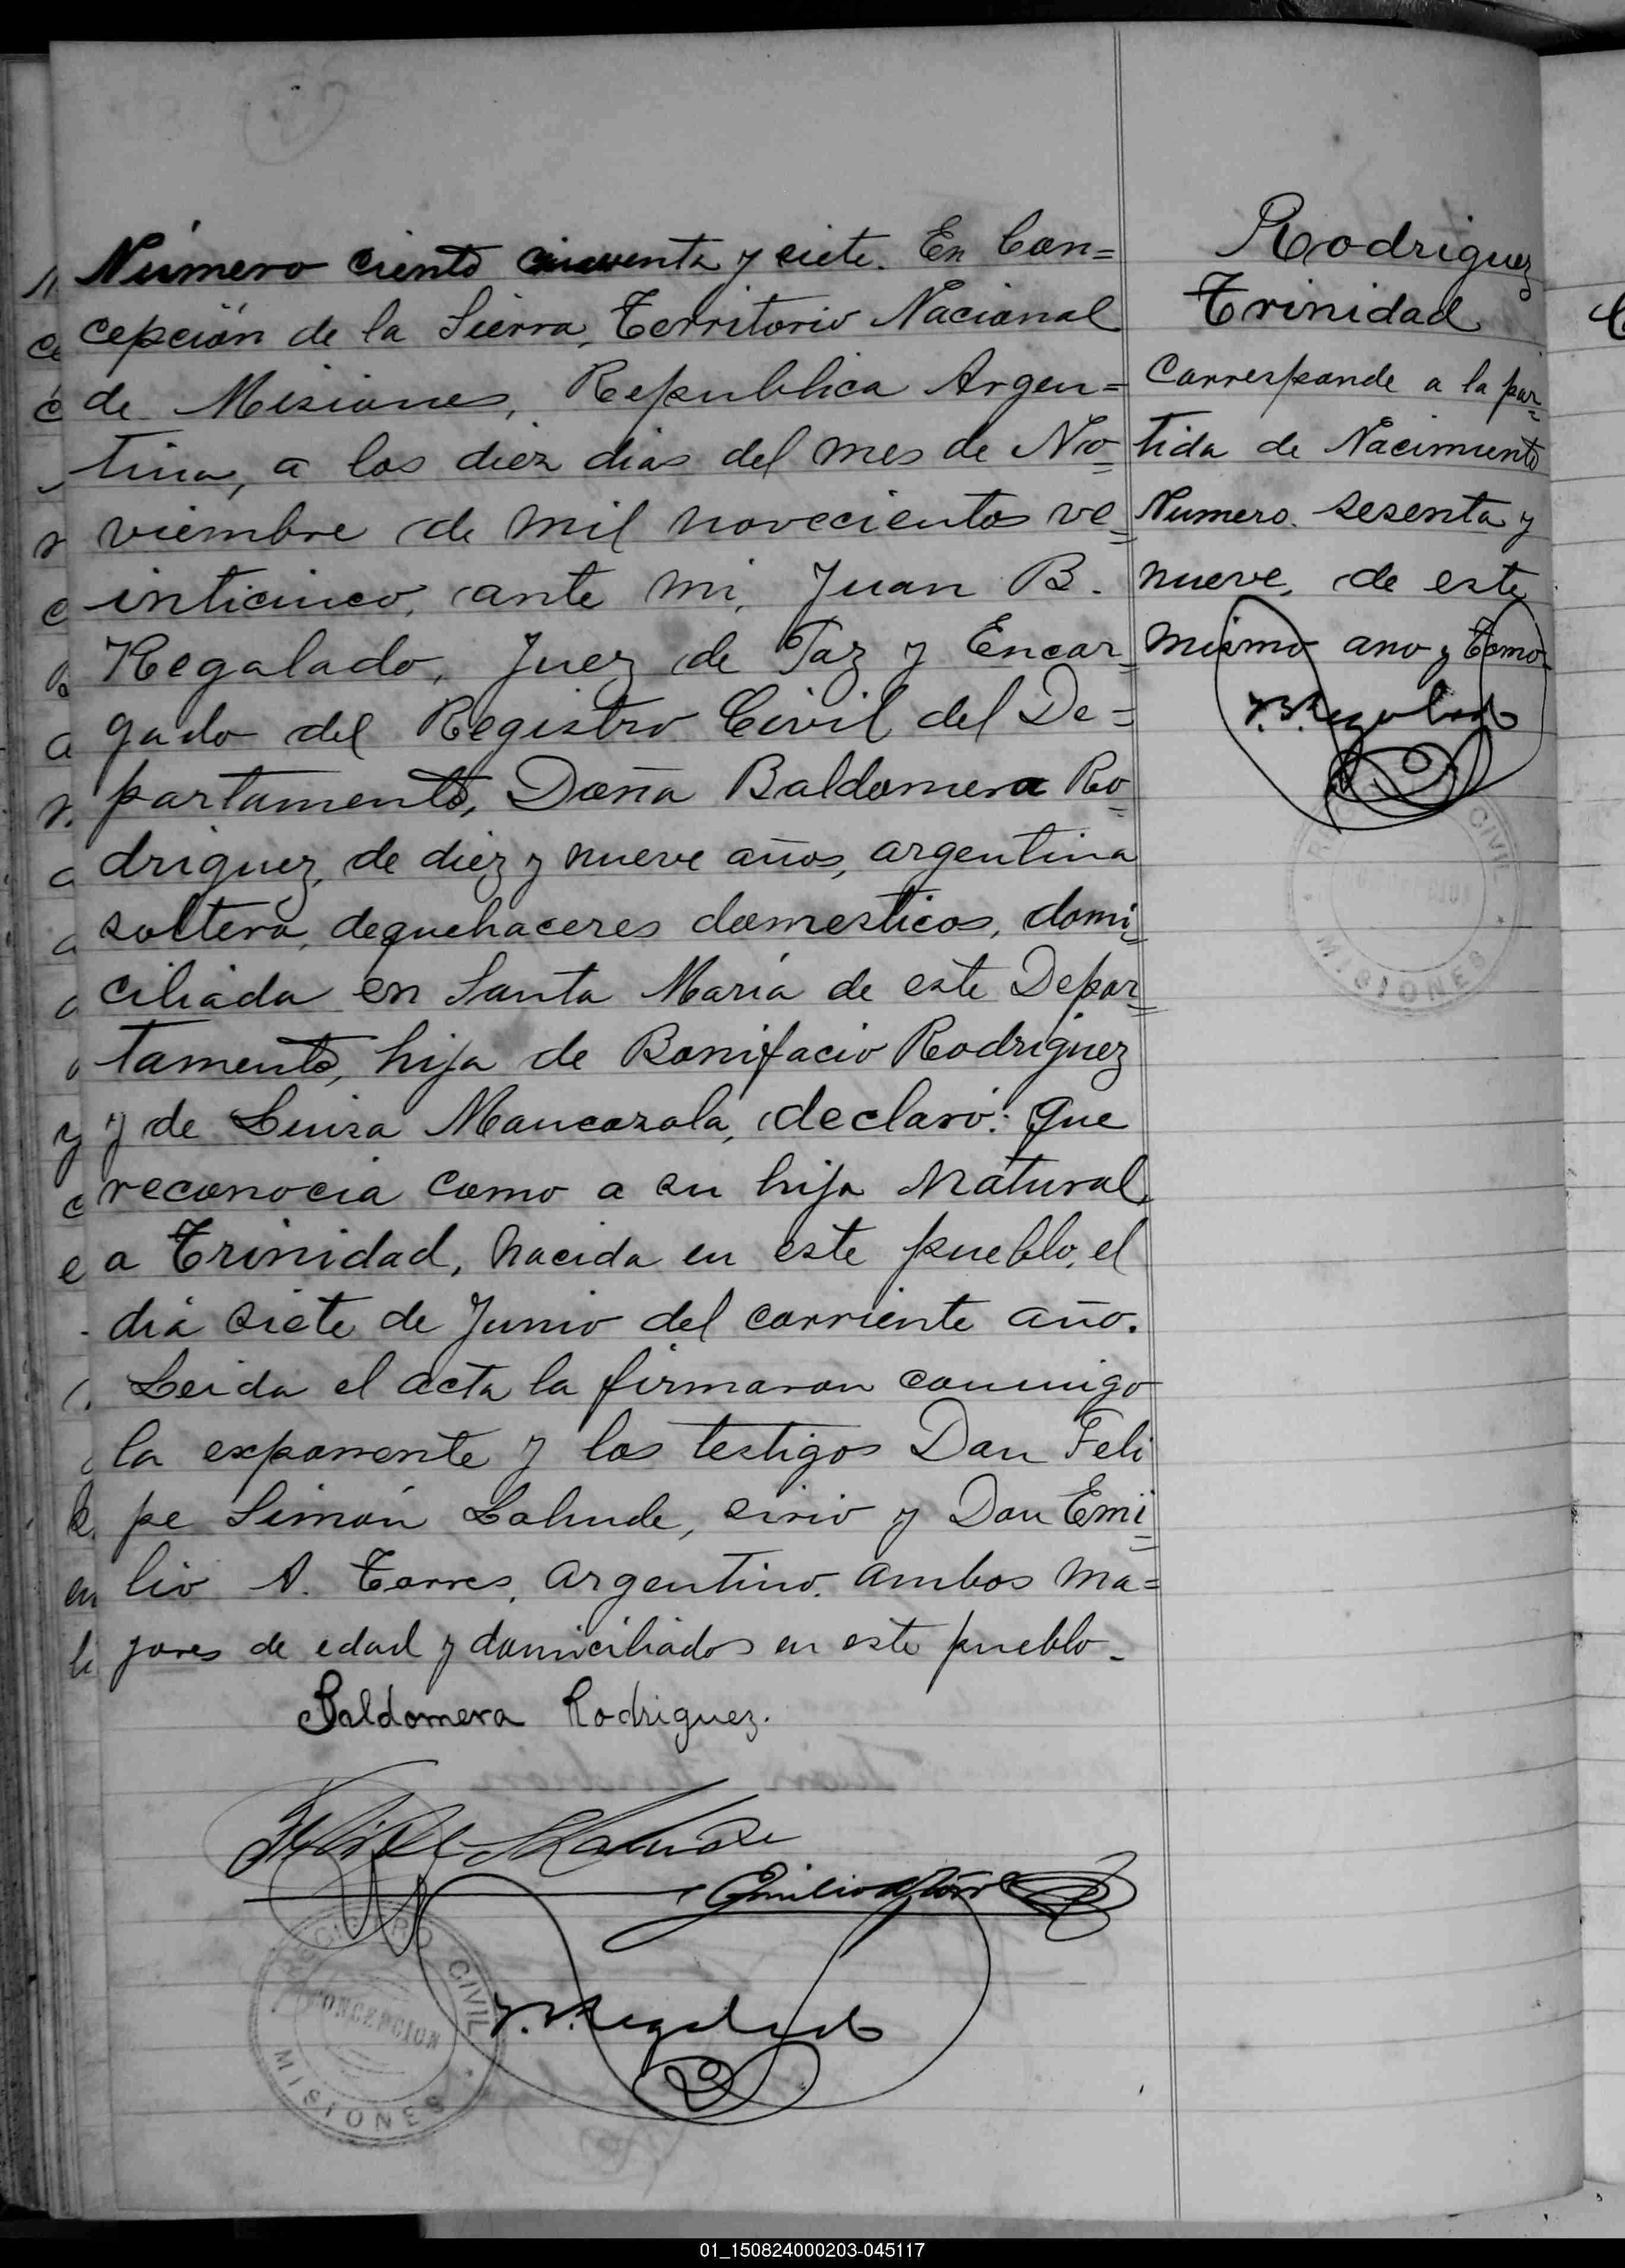 Número ciento cincuenta y siete. En Con=
cepción de la Sierra, Territorio Nacional
de Misiones, Republica Argen=
tina, a los diez dias del mes de No=
viembre de mil novecientos ve=
inticinco, ante mi, Juan B.
Regalado, Juez de Paz y Encar=
gado del Registro Civil del De=
partamento, Doña Baldomera Ro=
driguez, de diez y nueve años, argentina
soltera, de quehaceres domesticos, domi=
ciliada en Santa María de este Depar=
tamento, hija de Bonifacio Rodriguez
y de Luisa declaró: Que
reconocia como a su hija Natural
a Trinidad, nacida en este pueblo, el
dia siete de Junio del corriente año.
Leida el acta la firmaron conmigo
la exponente y los testigos Don Feli
pe Simón Lahude, sirio y Don Emi=
lio A. Torres, argentino, ambos ma=
yores de edad y domiciliados en este pueblo_
Baldomera Rodriguez.
Emilio A Torres
J. B. Regalado
REGISTRO CIVIL
CONCEPCION
MISIONES
Rodriguez
Trinidad
Corresponde a la par=
tida de Nacimiento
Numero. sesenta y
nueve, de este
mismo ano y Tomo
J. B. Regalado
CIVIL
MISIONES
01_150824000203-045117